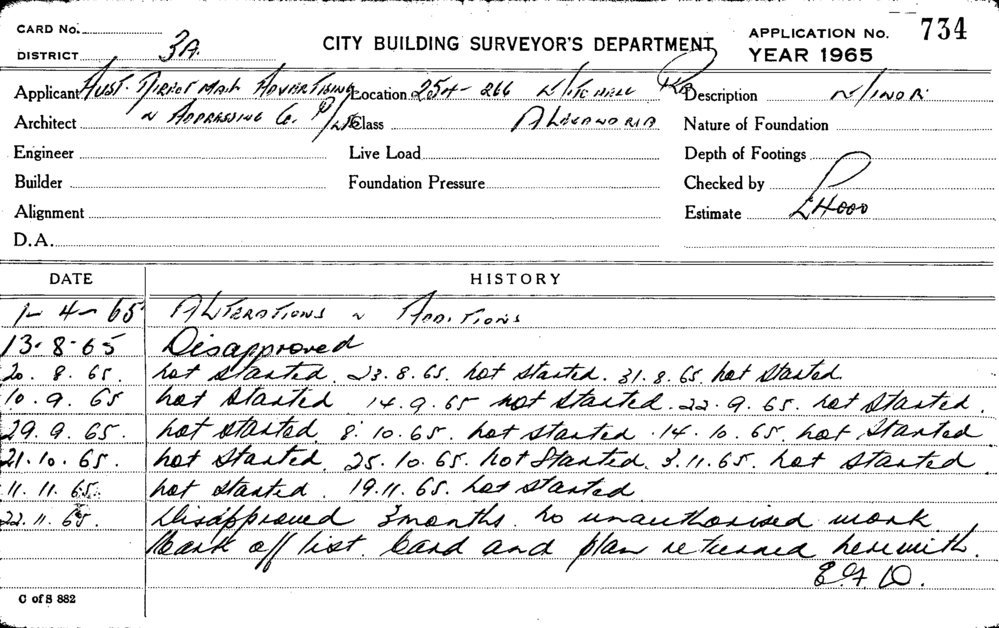 CARD No.
DISTRICT 3A.
CITY BUILDING SURVEYOR'S DEPARTMENT
APPLICATION No. 734
YEAR 1965
Applicant Aust. Direct Mail Advertising
Location 254-266 Mitchell Rd
Description Minor
Architect & Addressing Co. P/L
Class Alexandria
Nature of Foundation
Engineer
Live Load
Depth of Footings
Builder
Foundation Pressure
Checked by
Alignment
Estimate £4000
D.A.
DATE HISTORY
1-4-65 Alterations & Additions
13.8.65 Disapproved
20.8.65. not started. 23.8.65. not started. 31.8.65. not started.
10.9.65 not started 14.9.65 not started. 22.9.65. not started.
29.9.65. not started. 8.10.65. not started. 14.10.65. not started
21.10.65. not started. 25.10.65. not started. 3.11.65. not started.
11.11.65. not started. 19.11.65. not started.
22.11.65. Disapproved 3 months. no unauthorised work.
Mark off list. Card and plan returned herewith.
C of S 882